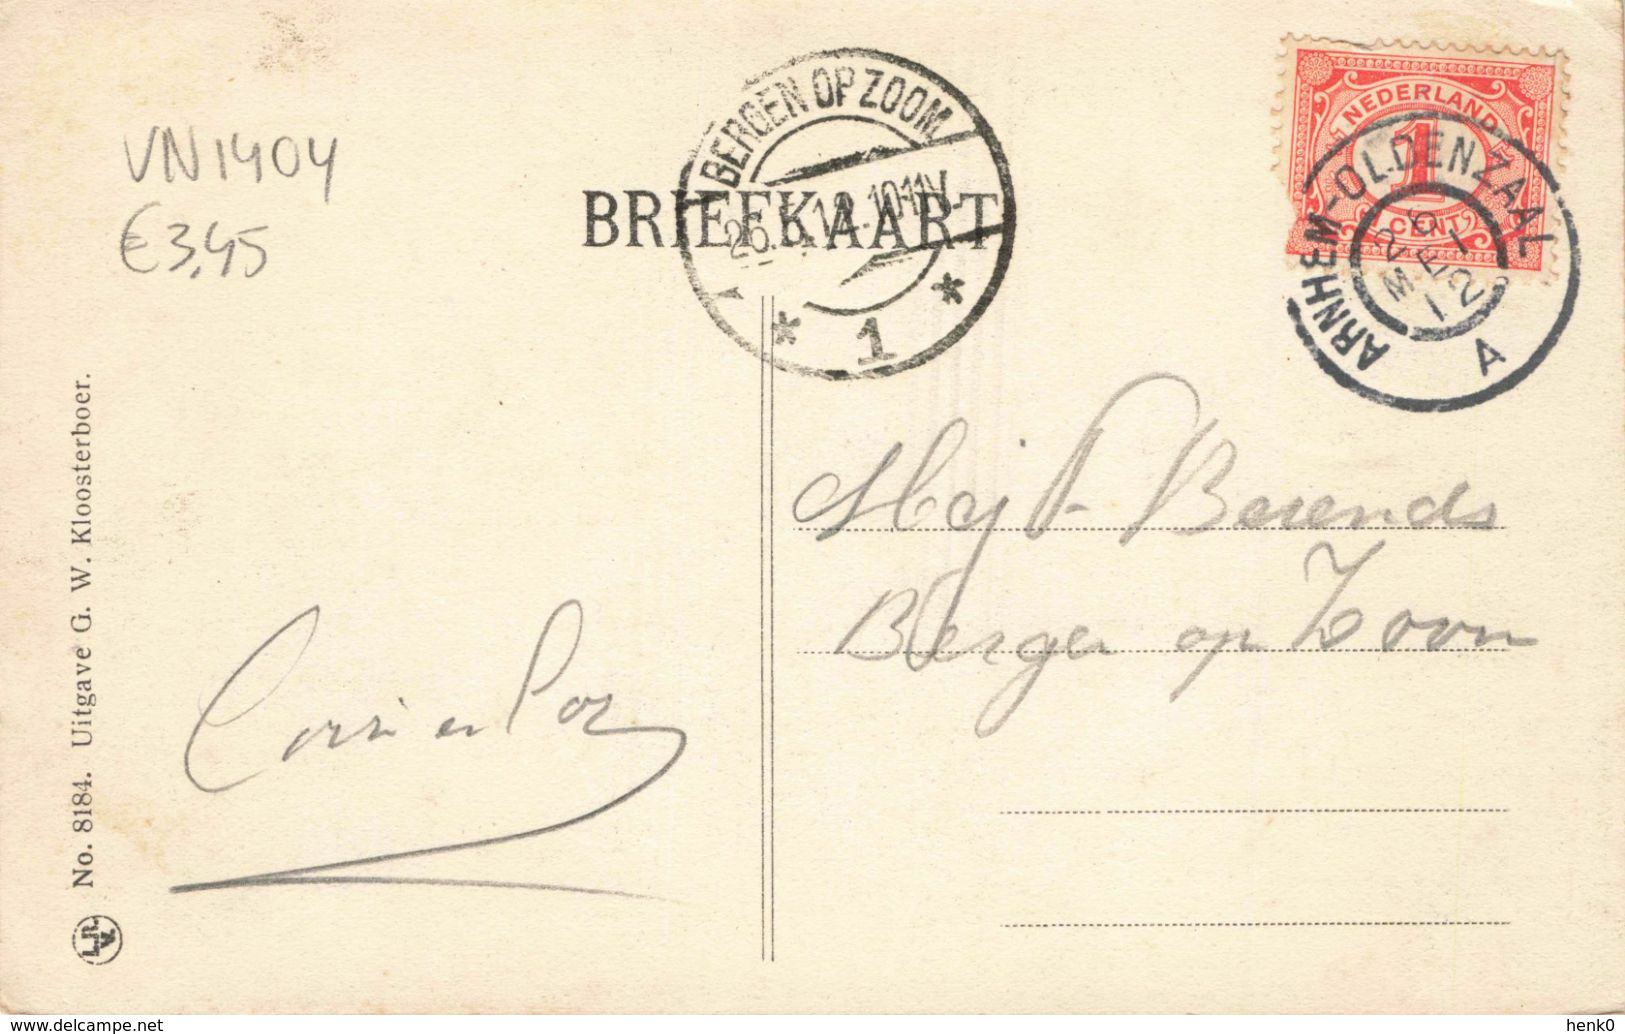 VN1404
€3,45
BERGEN OP ZOOM
10-11V.
* 1 *
BRIEFKAART
NEDERLAND
1
CENT
ARNHEM-OLDENZAAL
26
MEI
12
A
Mej Berends
Bergen op Zoom
No. 8184. Uitgave G. W. Kloosterboer.
L.R.
W.
www.delcampe.net
henk0